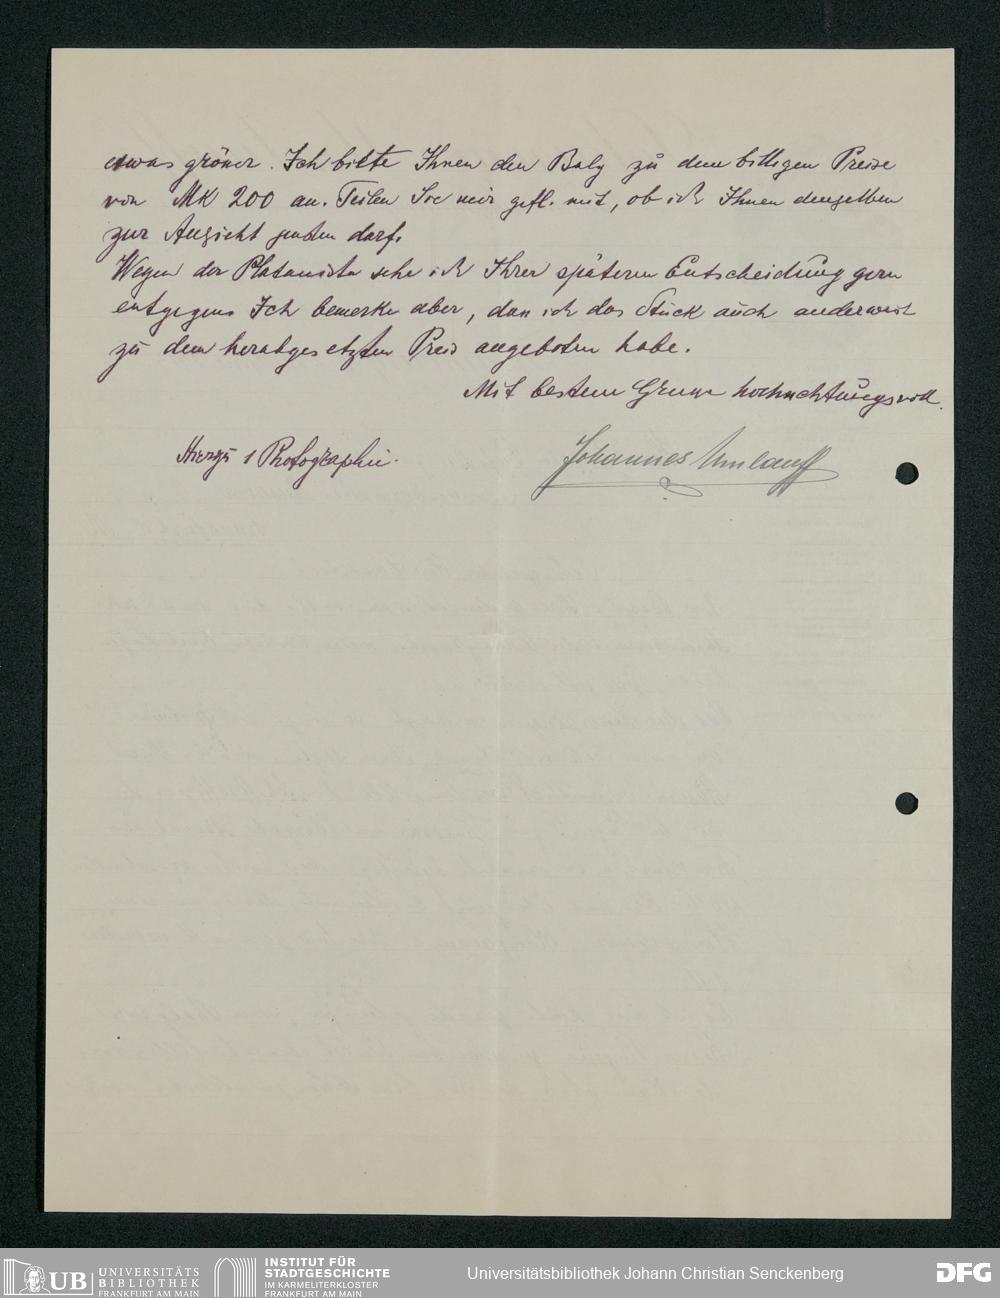 etwas grösser. Ich biete Ihnen den Balg zu dem billigen Preise
von Mk 200 an. Teilen Sie mir gefl. mit, ob ich Ihnen denselben
zur Ansicht senden darf.
Wegen der Platanista sehe ich Ihrer späteren Entscheidung gern
entgegen. Ich bemerke aber, dass ich das Stück auch anderweit
zu dem herabgesetzten Preis angeboten habe.
Mit bestem Grusse hochachtungsvoll.
Hierzu 1 Photographie.
Johannes Umlauff
UB UNIVERSITÄTS
BIBLIOTHEK
FRANKFURT AM MAIN
INSTITUT FÜR
STADTGESCHICHTE
IM KARMELITERKLOSTER
FRANKFURT AM MAIN
Universitätsbibliothek Johann Christian Senckenberg
DFG